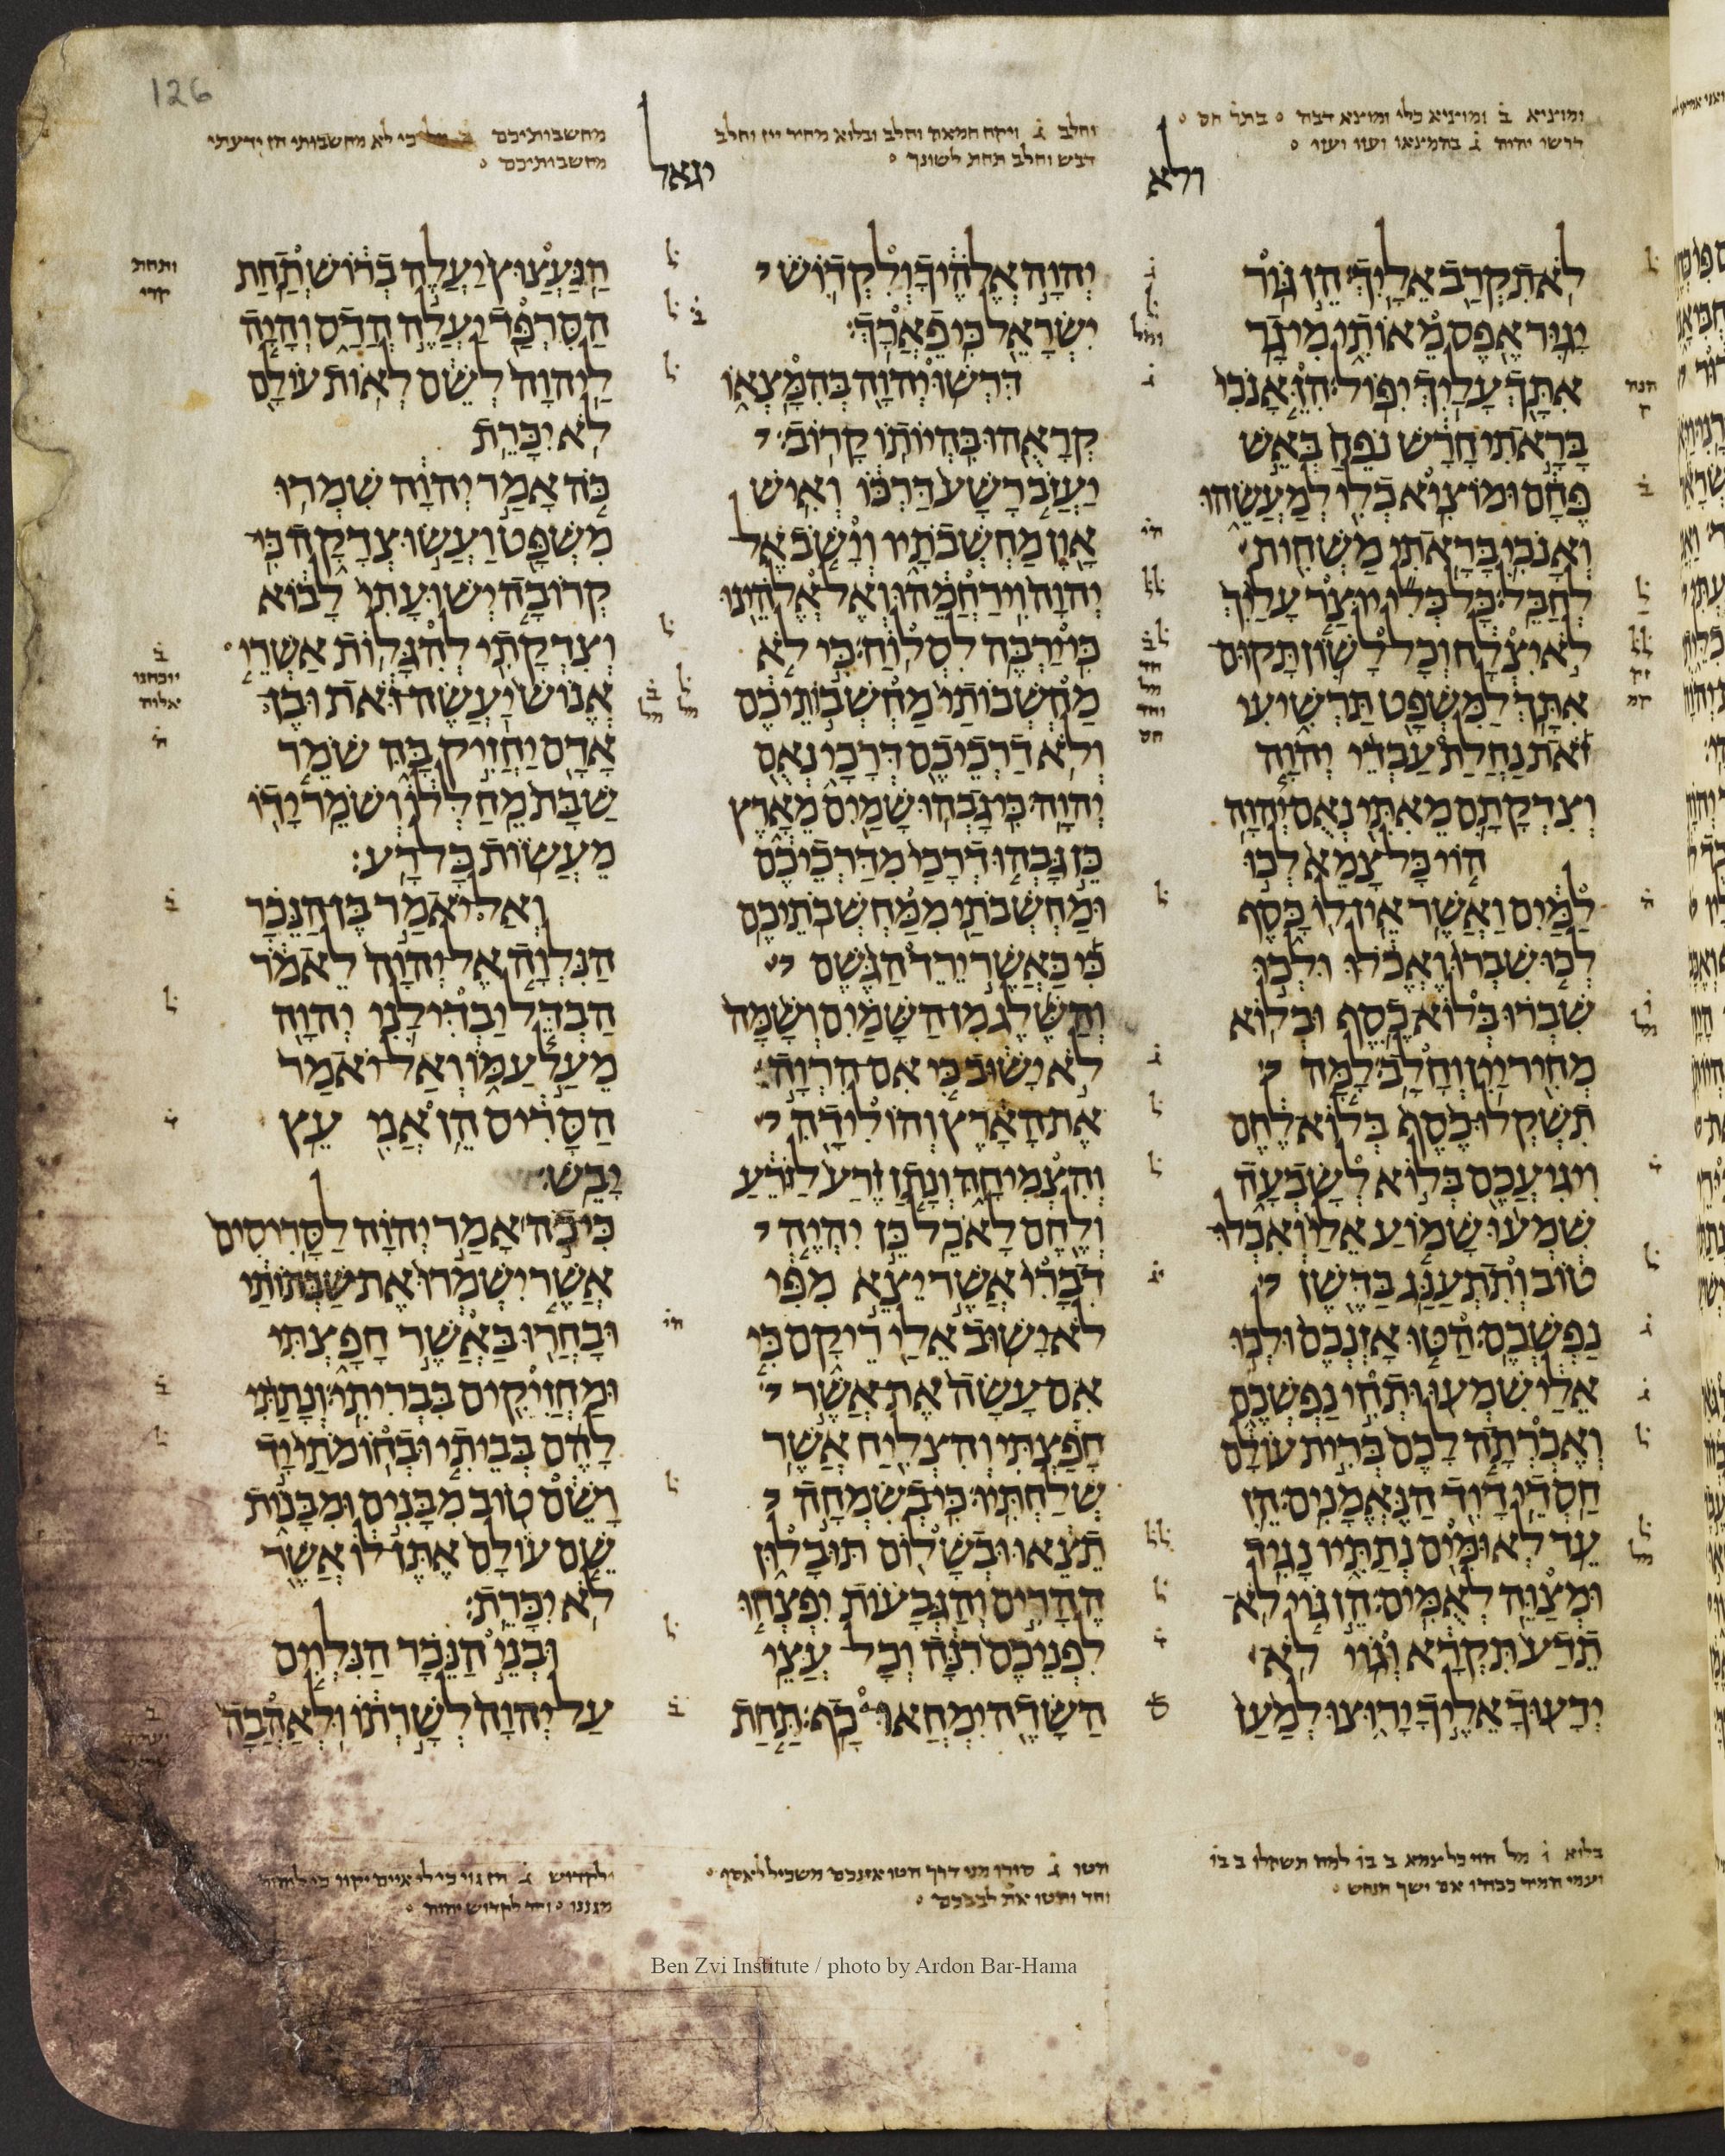 126
ומוציא ב ומוציא כלי ומוצא דבה בתר חס
דרשו יהוה ג בהמצאו ועזו ועזו
ולא
וחלב ג ויקח חמאה וחלב ובלוא מחיר יין וחלב
דבש וחלב תחת לשונך
יגאל
מחשבותיכם ב מל כי לא מחשבותי הן ידעתי
מחשבותיכם
לא תקרב אליך׃ הן גור
יגור אפס מאותי מי גר
אתך עליך יפול׃ הן אנכי
בראתי חרש נפח באש
פחם ומוציא כלי למעשהו
ואנכי בראתי משחית
לחבל׃ כל כלי יוצר עליך
לא יצלח וכל לשון תקום
אתך למשפט תרשיעי
זאת נחלת עבדי יהוה
וצדקתם מאתי נאם יהוה
הוי כל צמא לכו
למים ואשר אין לו כסף
לכו שברו ואכלו ולכו
שברו בלוא כסף ובלוא
מחיר יין וחלב׃ למה
תשקלו כסף בלוא לחם
ויגיעכם בלוא לשבעה
שמעו שמוע אלי ואכלו
טוב ותתענג בדשן
נפשכם׃ הטו אזנכם ולכו
אלי שמעו ותחי נפשכם
ואכרתה לכם ברית עולם
חסדי דויד הנאמנים׃ הן
עד לאומים נתתיו נגיד
ומצוה לאמים׃ הן גוי לא
תדע תקרא וגוי לא
ידעוך אליך ירוצו למען
יהוה אלהיך ולקדוש
ישראל כי פארך׃
דרשו יהוה בהמצאו
קראהו בהיותו קרוב׃
יעזב רשע דרכו ואיש
און מחשבתיו וישב אל
יהוה וירחמהו ואל אלהינו
כי ירבה לסלוח׃ כי לא
מחשבותי מחשבותיכם
ולא דרכיכם דרכי נאם
יהוה׃ כי גבהו שמים מארץ
כן גבהו דרכי מדרכיכם
ומחשבתי ממחשבתיכם
כי כאשר ירד הגשם
והשלג מן השמים ושמה
לא ישוב כי אם הרוה
את הארץ והולידה
והצמיחה ונתן זרע לזרע
ולחם לאכל׃ כן יהיה
דברי אשר יצא מפי
לא ישוב אלי ריקם כי
אם עשה את אשר
חפצתי והצליח אשר
שלחתיו׃ כי בשמחה
תצאו ובשלום תובלון
ההרים והגבעות יפצחו
לפניכם רנה וכל עצי
השדה ימחאו כף׃ תחת
הנעצוץ יעלה ברוש תחת
הסרפד יעלה הדס והיה
ליהוה לשם לאות עולם
לא יכרת
כה אמר יהוה שמרו
משפט ועשו צדקה כי
קרובה ישועתי לבוא
וצדקתי להגלות׃ אשרי
אנוש יעשה זאת ובן
אדם יחזיק בה שמר
שבת מחללו ושמר ידו
מעשות כל רע׃
ואל יאמר בן הנכר
הנלוה אל יהוה לאמר
הבדל יבדילני יהוה
מעל עמו ואל יאמר
הסריס הן אני עץ
יבש׃
כי כה אמר יהוה לסריסים
אשר ישמרו את שבתותי
ובחרו באשר חפצתי
ומחזיקים בבריתי׃ ונתתי
להם בביתי ובחומתי יד
ושם טוב מבנים ומבנות
שם עולם אתן לו אשר
לא יכרת׃
ובני הנכר הנלוים
על יהוה לשרתו ולאהבה
בלוא ו מל הוי כל צמא ב בו למה תשקלו ב בו
ועמי המיר כבודו אם ישך הנחש
הטו ג סורו מני דרך הטו אזנכם משכיל לאסף
וחד והטו את לבבכם
ולקדוש ג הן גוי כי לי איים יקוו כי ליהוה
מגננו וחד לקדוש יהוה
Ben Zvi Institute / photo by Ardon Bar-Hama